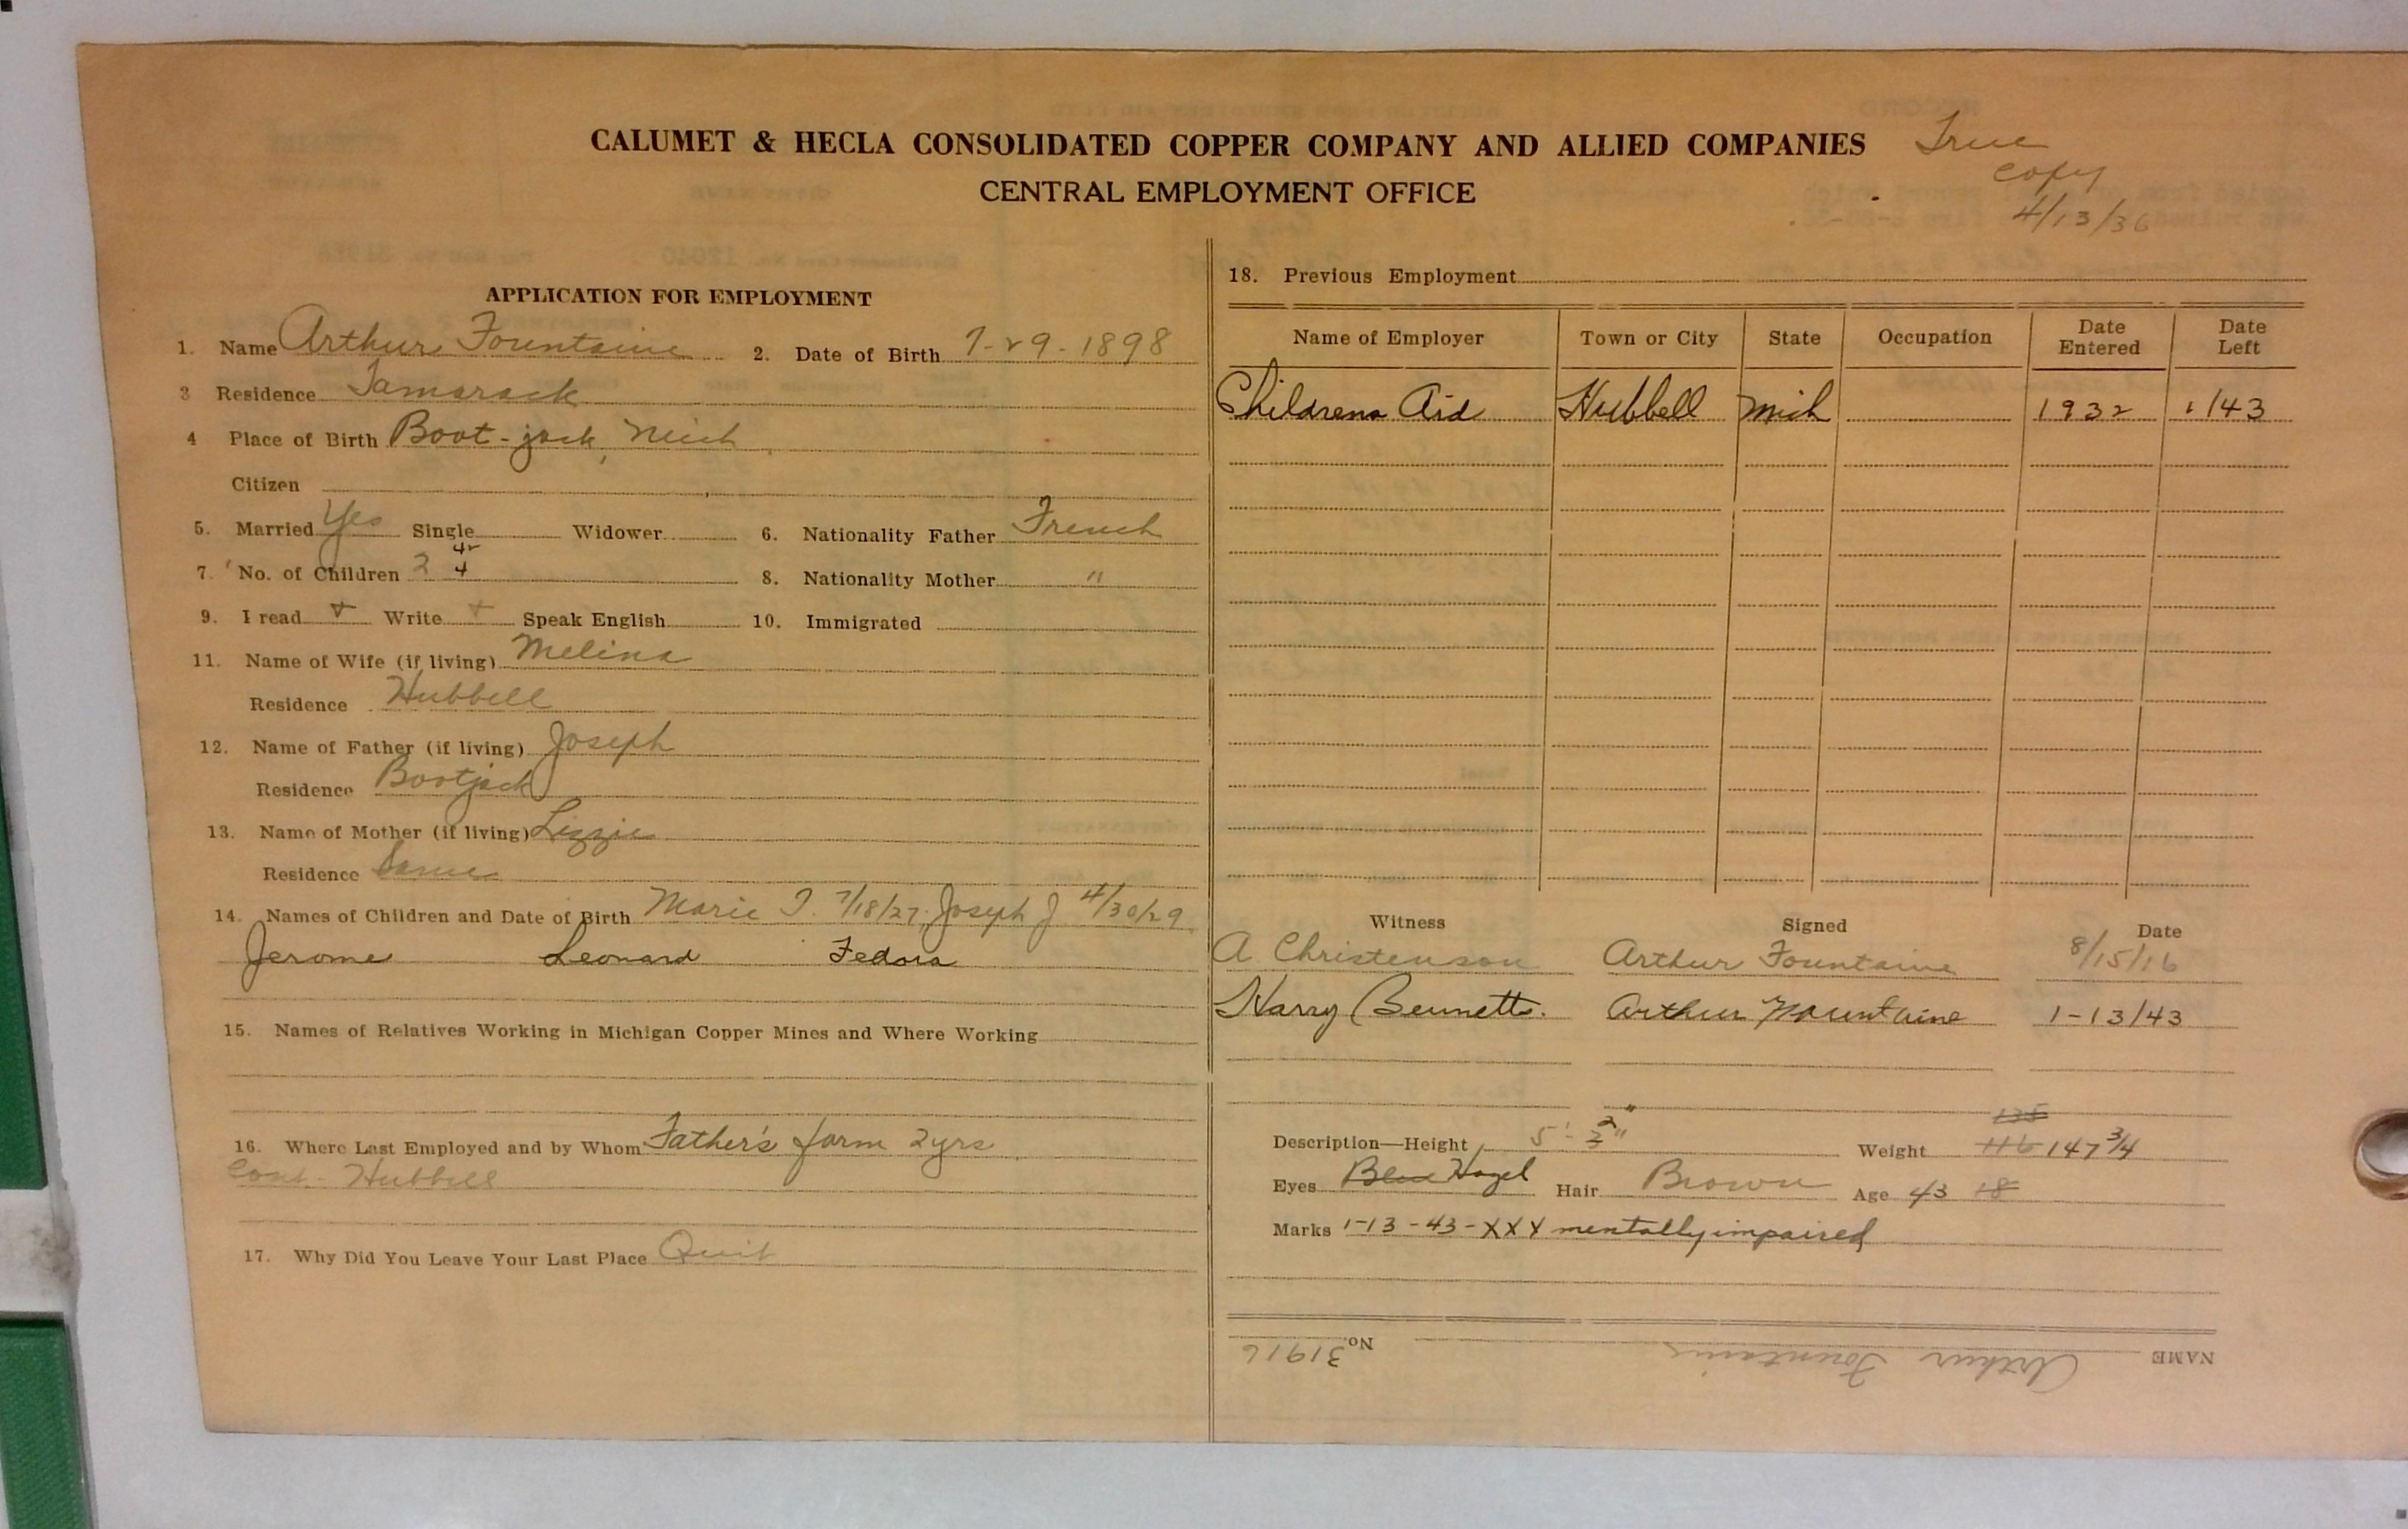 CALUMET & HECLA CONSOLIDATED COPPER COMPANY AND ALLIED COMPANIES True
CENTRAL EMPLOYMENT OFFICE copy
4/13/36
APPLICATION FOR EMPLOYMENT
1. Name Arthur Fountaine 2. Date of Birth 7-29-1898
3 Residence Tamarack
4 Place of Birth Boot-jack, Mich
Citizen
5. Married Yes Single Widower 6. Nationality Father French
7. No. of Children 2 4 8. Nationality Mother "
9. I read + Write + Speak English 10. Immigrated
11. Name of Wife (if living) Melina
Residence Hubbell
12. Name of Father (if living) Joseph
Residence Bootjack
13. Name of Mother (if living) Lizzie
Residence Same
14. Names of Children and Date of Birth Marie T. 7/18/27, Joseph J 4/30/29
Jerome Leonard Fedora
15. Names of Relatives Working in Michigan Copper Mines and Where Working
16. Where Last Employed and by Whom Father's farm 2yrs
Hubbell
17. Why Did You Leave Your Last Place Quit
18. Previous Employment
Name of Employer Town or City State Occupation Date Entered Date Left
Childrens Aid Hubbell Mich 1932 1/43
Witness Signed Date
A Christenson Arthur Fountaine 8/15/16
Harry Bennetts. Arthur Fountaine 1-13/43
135
Description—Height 5'-2" Weight 116 147 3/4
Eyes Blue Hazel Hair Brown Age 43 18
Marks 1-13-43-XXX mentally impaired
NAME Arthur Fountaine No. 31916